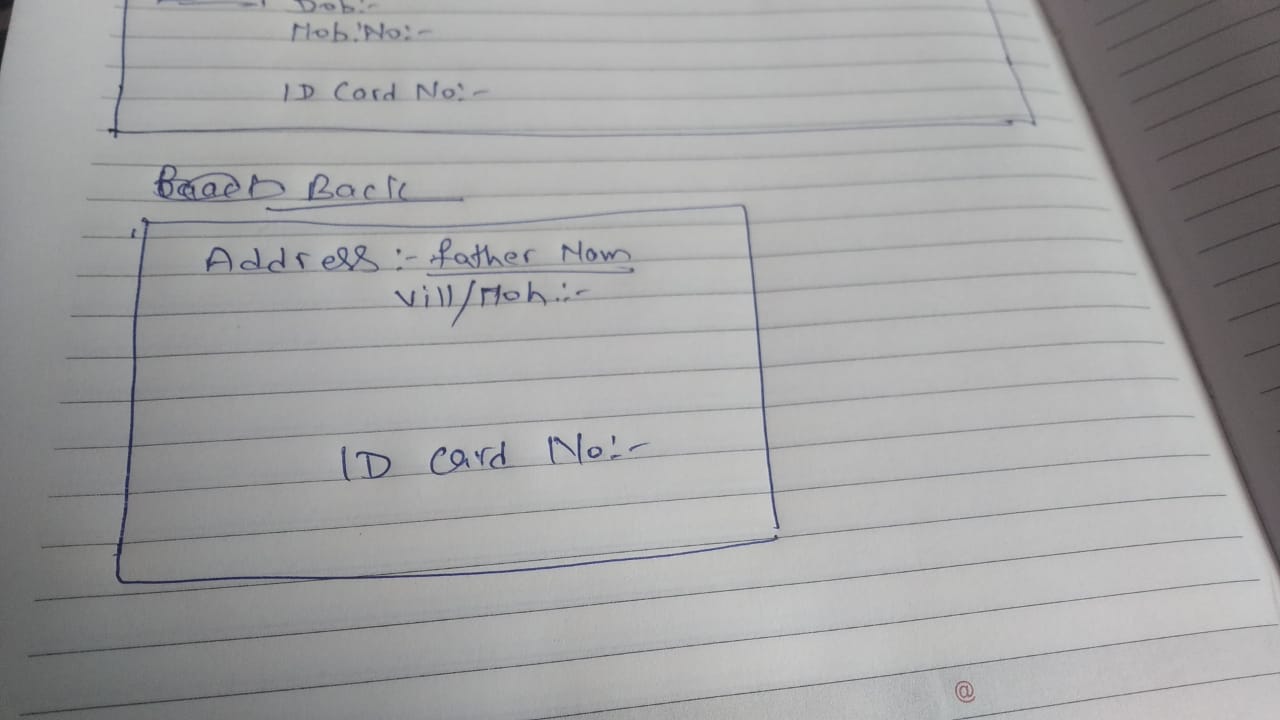 Dob:-
Mob. No:-
ID Card No:-
Back
Address :- father Nam
Vill/Moh :-
ID Card No:-
@